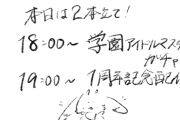 本日は2本立て!
18:00～ 学園アイドルマスター
ガチャ
19:00～ 1周年記念配信